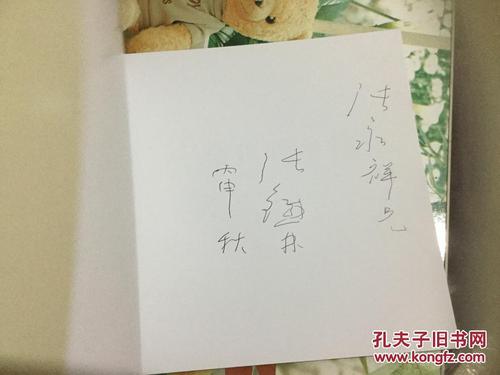 张永祥兄
张鐵林
丙申秋
孔夫子旧书网
www.kongfz.com